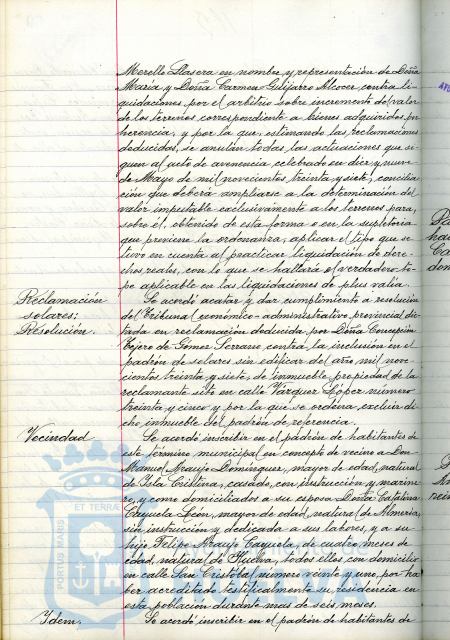 Merello Llasera en nombre y representación de Doña
María y Doña Carmen Guijarro Alcocer contra li-
quidaciones por el arbitrio sobre incremento de valor
de los terrenos correspondiente a bienes adquiridos por
herencia, y por la que, estimando las reclamaciones
deducidas, se anulan todas las actuaciones que si-
guen al acto de avenencia celebrado en diez y nueve
de Mayo de mil novecientos treinta y siete, concilia-
ción que deberá ampliarse a la determinación del
valor imputable exclusivamente a los terrenos para,
sobre él, obtenido de esta forma o en la supletoria
que previene la ordenanza, aplicar el tipo que se
tuvo en cuenta al practicar liquidación de dere-
chos reales, con lo que se hallará el verdadero to-
pe aplicable en las liquidaciones de plus valía.
Reclamación
solares:
Resolución.
Se acordó acatar y dar cumplimiento a resolución
del Tribunal económico-administrativo provincial dic-
tada en reclamación deducida por Doña Concepción
Tejero de Gómez Serrano contra la inclusión en el
padrón de solares sin edificar del año mil nove-
cientos treinta y siete, de inmueble propiedad de la
reclamante sito en calle Vázquez López número
treinta y cinco y por la que se ordena excluir di-
cho inmueble del padrón de referencia.
Vecindad
Se acordó inscribir en el padrón de habitantes de
este término municipal en concepto de vecino a Don
Manuel Araujo Domínguez, mayor de edad, natural
de Isla Cristina, casado, con instrucción y marine-
ro, y como domiciliados a su esposa Doña Catalina
Cayuela León, mayor de edad, natural de Almería,
sin instrucción y dedicada a sus labores, y a su
hijo Felipe Araujo Cayuela de cuatro meses de
edad, natural de Huelva, todos ellos con domicilio
en calle San Cristóbal número veinte y uno, por ha-
ber acreditado testificalmente su residencia en
esta población durante mas de seis meses.
Idem.
Se acordó inscribir en el padrón de habitantes de
PORTUS MARIS
ET TERRÆ